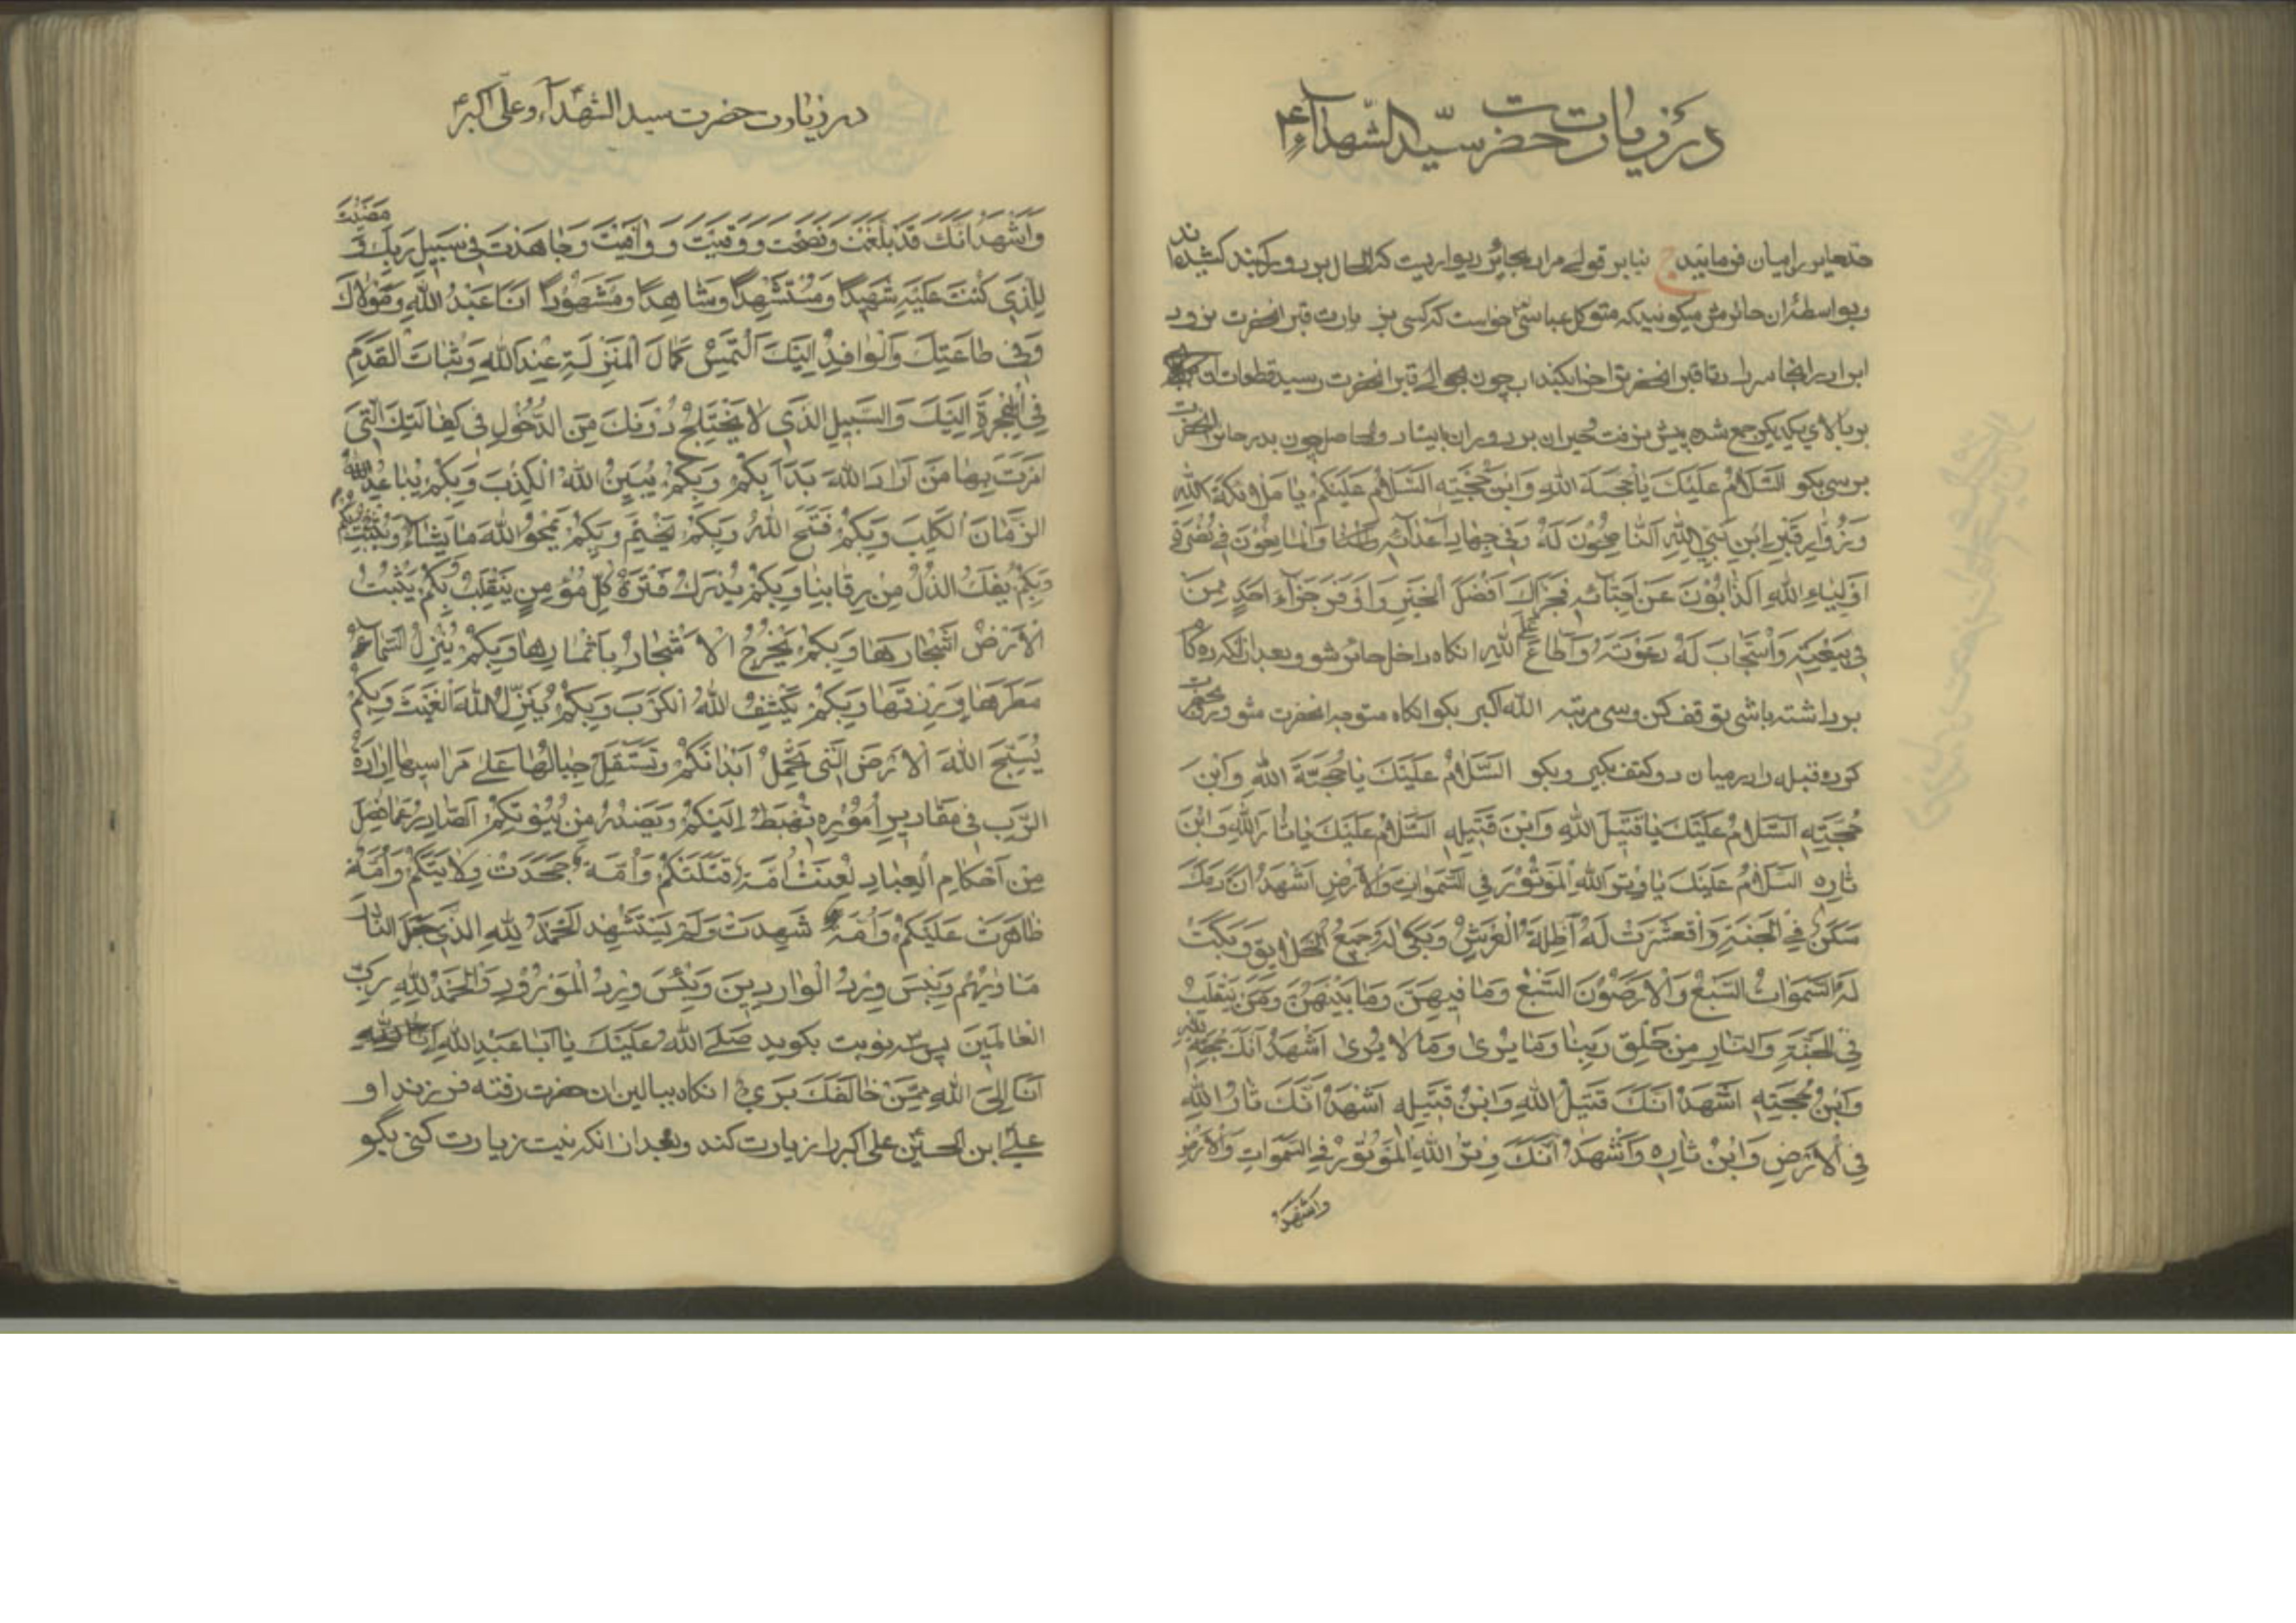 در زیارت حضرت سیّد الشّهدآء ع
حد حایر را میان فرمایید بنا بر قولی مراد بحائر دیواریست که الحال بر دور کشیده‌اند
و بواسطهٔ ان حائرش میکویند که متوکل عباسی خواست که کسی بزیارت قبر انحضرت نرود
اب را در انجا سر داد تا قبر انحضرت را خراب کند اب چون بحوالی قبر انحضرت رسید قطعات ان
بر بالای یکدیکر جمع شده پیش نرفت و حیران بر دور ان ایستاد و الحاصل چون بدر حائر انحضرت
برسی بکو اَلسَّلامُ عَلَیْكَ یا حُجَّةَ اللهِ وَابْنَ حُجَّتِهِ اَلسَّلامُ عَلَیْکُمْ یا مَلائِکَةَ اللهِ
وَزُوّارَ قَبْرِ ابْنِ نَبِیِّ اللهِ
اَوْلِیاءِ اللهِ الذّابُّونَ عَنْ اَحِبّائِهِ فَجَزاكَ اَفْضَلَ الْخَیْرِ وَاَوْفَرَ جَزآءِ اَحَدٍ مِنَ
فی بَیْعَتِهِ وَاسْتَجابَ لَهُ دَعْوَتَهُ وَاَطاعَ اللهِ انکاه داخل حائر شو و بعد از انکه ده کام
برداشته باشی توقف کن و سی مرتبه الله اکبر بکو انکاه متوجه انحضرت شو و
کرده قبله را در میان دو کتف بکیر و بکو اَلسَّلامُ عَلَیْكَ یا حُجَّةَ اللهِ وَابْنَ
حُجَّتِهِ اَلسَّلامُ عَلَیْكَ یا قَتیلَ اللهِ وَابْنَ قَتیلِهِ اَلسَّلامُ عَلَیْكَ یا ثارَ اللهِ وَابْنَ
ثارِهِ اَلسَّلامُ عَلَیْكَ یا وِتْرَ اللهِ الْمَوْتُورَ فِی السَّمَواتِ وَالْاَرْضِ اَشْهَدُ اَنَّ دَمَكَ
سَکَنَ فِی الْجَنَّةِ وَاقْشَعَرَّتْ لَهُ اَظِلَّةُ الْعَرْشِ وَبَکی لَهُ جَمیعُ الْخَلایِقِ وَبَکَتْ
لَهُ السَّمَواتُ السَّبْعُ وَالْاَرَضُونَ السَّبْعُ وَما فیهِنَّ وَما بَیْنَهُنَّ وَمَنْ یَتَقَلَّبُ
فِی الْجَنَّةِ وَالنّارِ مِنْ خَلْقِ رَبِّنا وَما یُری وَما لا یُری اَشْهَدُ اَنَّكَ حُجَّةُ اللهِ
وَابْنُ حُجَّتِهِ اَشْهَدُ اَنَّكَ قَتیلُ اللهِ وَابْنُ قَتیلِهِ اَشْهَدُ اَنَّكَ ثارُ اللهِ
فِی الْاَرْضِ وَابْنُ ثارِهِ وَاَشْهَدُ اَنَّكَ وِتْرُ اللهِ الْمَوْتُورُ فِی السَّمَواتِ وَالْاَرْضِ
وَاَشْهَدُ
در زیارت حضرت سید الشهدآء و علی اکبر ع
وَاَشْهَدُ اَنَّكَ قَدْ بَلَّغْتَ وَنَصَحْتَ وَوَفَیْتَ وَوافَیْتَ وَجاهَدْتَ فی سَبیلِ رَبِّكَ وَ مَضَیْتَ
لِلَّذی کُنْتَ عَلَیْهِ شَهیدًا وَمُسْتَشْهِدًا وَشاهِدًا وَمَشْهُودًا اَنَا عَبْدُ اللهِ وَمَوْلاكَ
وَفی طاعَتِكَ وَالْوافِدُ اِلَیْكَ اَلْتَمِسُ کَمالَ الْمَنْزِلَةِ عِنْدَ اللهِ وَثَباتَ الْقَدَمِ
فِی الْهِجْرَةِ اِلَیْكَ وَالسَّبیلِ الَّذی لا یَخْتَلِجُ دُونَكَ مِنَ الدُّخُولِ فی کِفالَتِكَ الَّتی
اُمِرْتَ بِها مَنْ اَرادَ اللهَ بَدَاَ بِکُمْ وَبِکُمْ یُبَیِّنُ اللهُ الْکَذِبَ وَبِکُمْ یُباعِدُ اللهُ
الزَّمانَ الْکَلِبَ وَبِکُمْ فَتَحَ اللهُ وَبِکُمْ یَخْتِمُ وَبِکُمْ یَمْحُو اللهُ ما یَشآءُ وَیُثْبِتُ
وَبِکُمْ یَفُكُّ الذُّلَّ مِنْ رِقابِنا وَبِکُمْ یُدْرِكُ فَتَرَةَ کُلِّ مُؤْمِنٍ یَتَقَلَّبُ بِکُمْ یُنْبِتُ
الْاَرْضُ اَشْجارَها وَبِکُمْ یُخْرِجُ الْاَشْجارُ بِاَثْمارِها وَبِکُمْ یُنْزِلُ السَّمآءُ
مَطَرَها وَرِزْقَها وَبِکُمْ یَکْشِفُ اللهُ الْکَرْبَ وَبِکُمْ یُنَزِّلُ اللهُ الْغَیْثَ وَبِکُمْ
یُسَبِّحُ اللهَ الْاَرْضُ الَّتی تَحْمِلُ اَبْدانَکُمْ وَتَسْتَقِلُّ جِبالُها عَلی مَراسیها اِرادَةُ
الرَّبِّ فی مَقادیرِ اُمُورِهِ تَهْبِطُ اِلَیْکُمْ وَیَصْدُرُ مِنْ بُیُوتِکُمُ الصّادِرُ عَمّا فُصِلَ
مِنْ اَحْکامِ الْعِبادِ لُعِنَتْ اُمَّةٌ قَتَلَتْکُمْ وَاُمَّةٌ جَحَدَتْ وِلایَتَکُمْ وَاُمَّةٌ
ظاهَرَتْ عَلَیْکُمْ وَاُمَّةٌ شَهِدَتْ وَلَمْ یَسْتَشْهِدْ اَلْحَمْدُ لِلّهِ الَّذی جَعَلَ النّارَ
مَاْویهُمْ وَبِئْسَ وِرْدُ الْوارِدینَ وَبِئْسَ وِرْدُ الْمَوْرُودِ وَالْحَمْدُ لِلّهِ رَبِّ
الْعالَمینَ پس سه نوبت بکوید صَلَّی اللهُ عَلَیْكَ یا اَبا عَبْدِ اللهِ
اَنَا اِلَی اللهِ مِمَّنْ خالَفَكَ بَرِیٌ انکاه ببالین ان حضرت رفته فرزند او
علی ابن الحسین علی اکبر را زیارت کند و بعد از انکه نیت زیارت کنی بگو